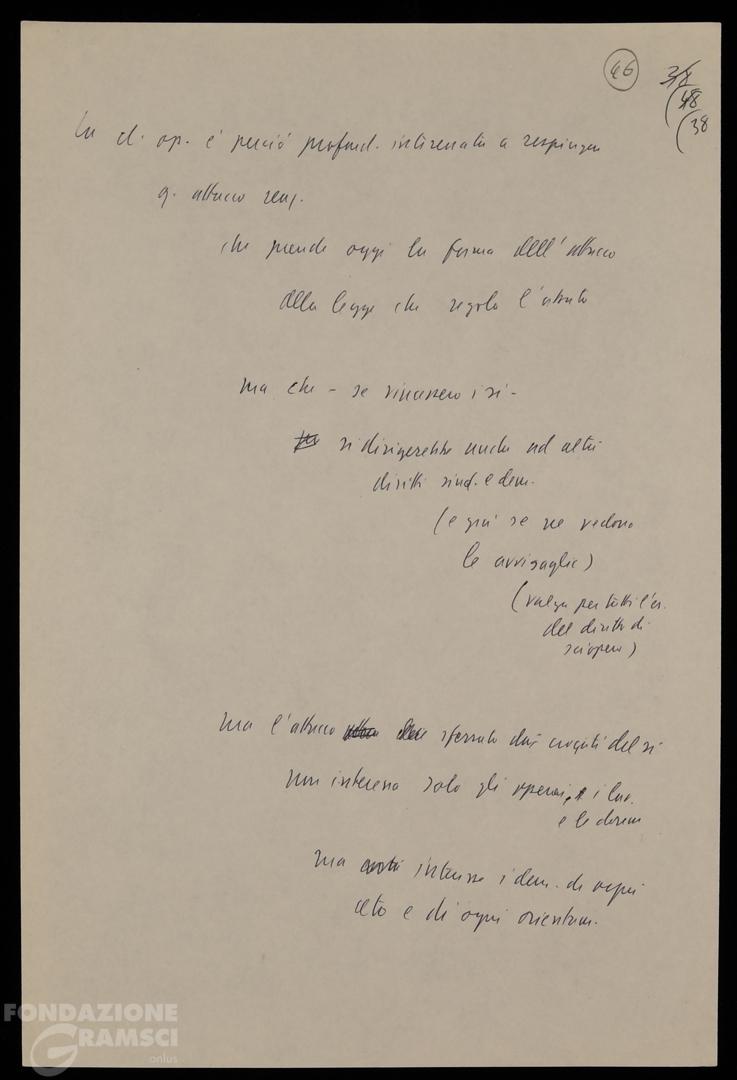 46
38
(48
(38
La cl. op. è perciò profond. interessata a respingere
q. attacco reaz.
che prende oggi la forma dell'attacco
alla legge che regola l'aborto
ma che – se vincessero i sì –
si dirigerebbe anche ad altri
diritti sind. e dem.
(e già se ne vedono
le avvisaglie)
(valga per tutti l'es.
del diritto di
sciopero)
ma l'attacco sferrato dai crociati del sì
non interessa solo gli operai, i lav.
e le donne
ma interessa i dem. di ogni
ceto e di ogni orientam.
FONDAZIONE
GRAMSCI
onlus